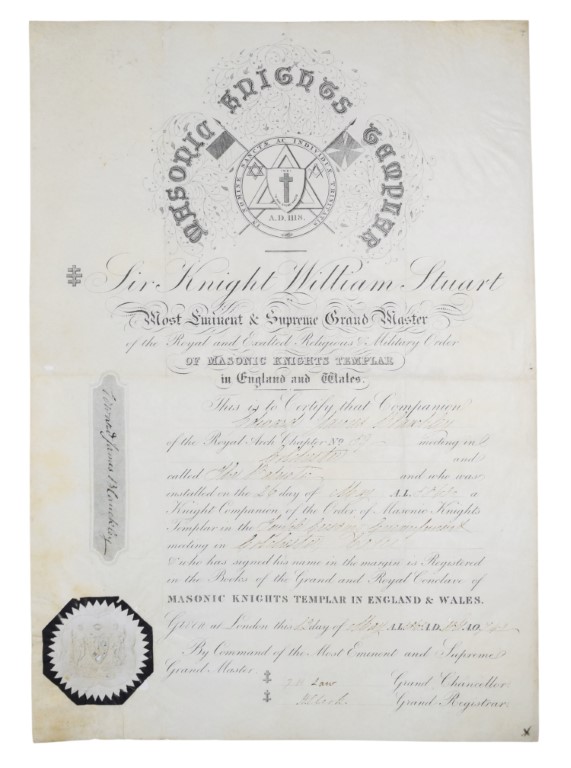 MASONIC KNIGHTS TEMPLAR
IN NOMINE SANCTÆ AC INDIVIDUÆ TRINITATIS
A.D. 1118.
Sir Knight William Stuart
Most Eminent & Supreme Grand Master
of the Royal and Exalted Religious & Military Order
OF MASONIC KNIGHTS TEMPLAR
in England and Wales.
This is to Certify, that Companion
Edward James
of the Royal Arch Chapter No. 59 meeting in
Colchester and
called The Patriotic and who was
installed on the 26 day of May A.L. a
Knight Companion, of the Order of Masonic Knights
Templar in the Encampment
meeting in Colchester
& who has signed his name in the margin is Registered
in the Books of the Grand and Royal Conclave of
MASONIC KNIGHTS TEMPLAR IN ENGLAND & WALES.
Given at London this day of May A.L. A.D. A.O.
By Command of the Most Eminent and Supreme
Grand Master
Law Grand Chancellor
Grand Registrar
Edward James